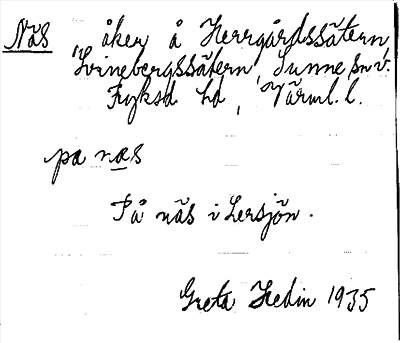 Näs, åker å Herrgårdssätern,
Svinebergssätern, Sunne sn v.
Fryksd hd, Värml. l.
pa næs
På näs i Lersjön.
Greta Hedin 1935